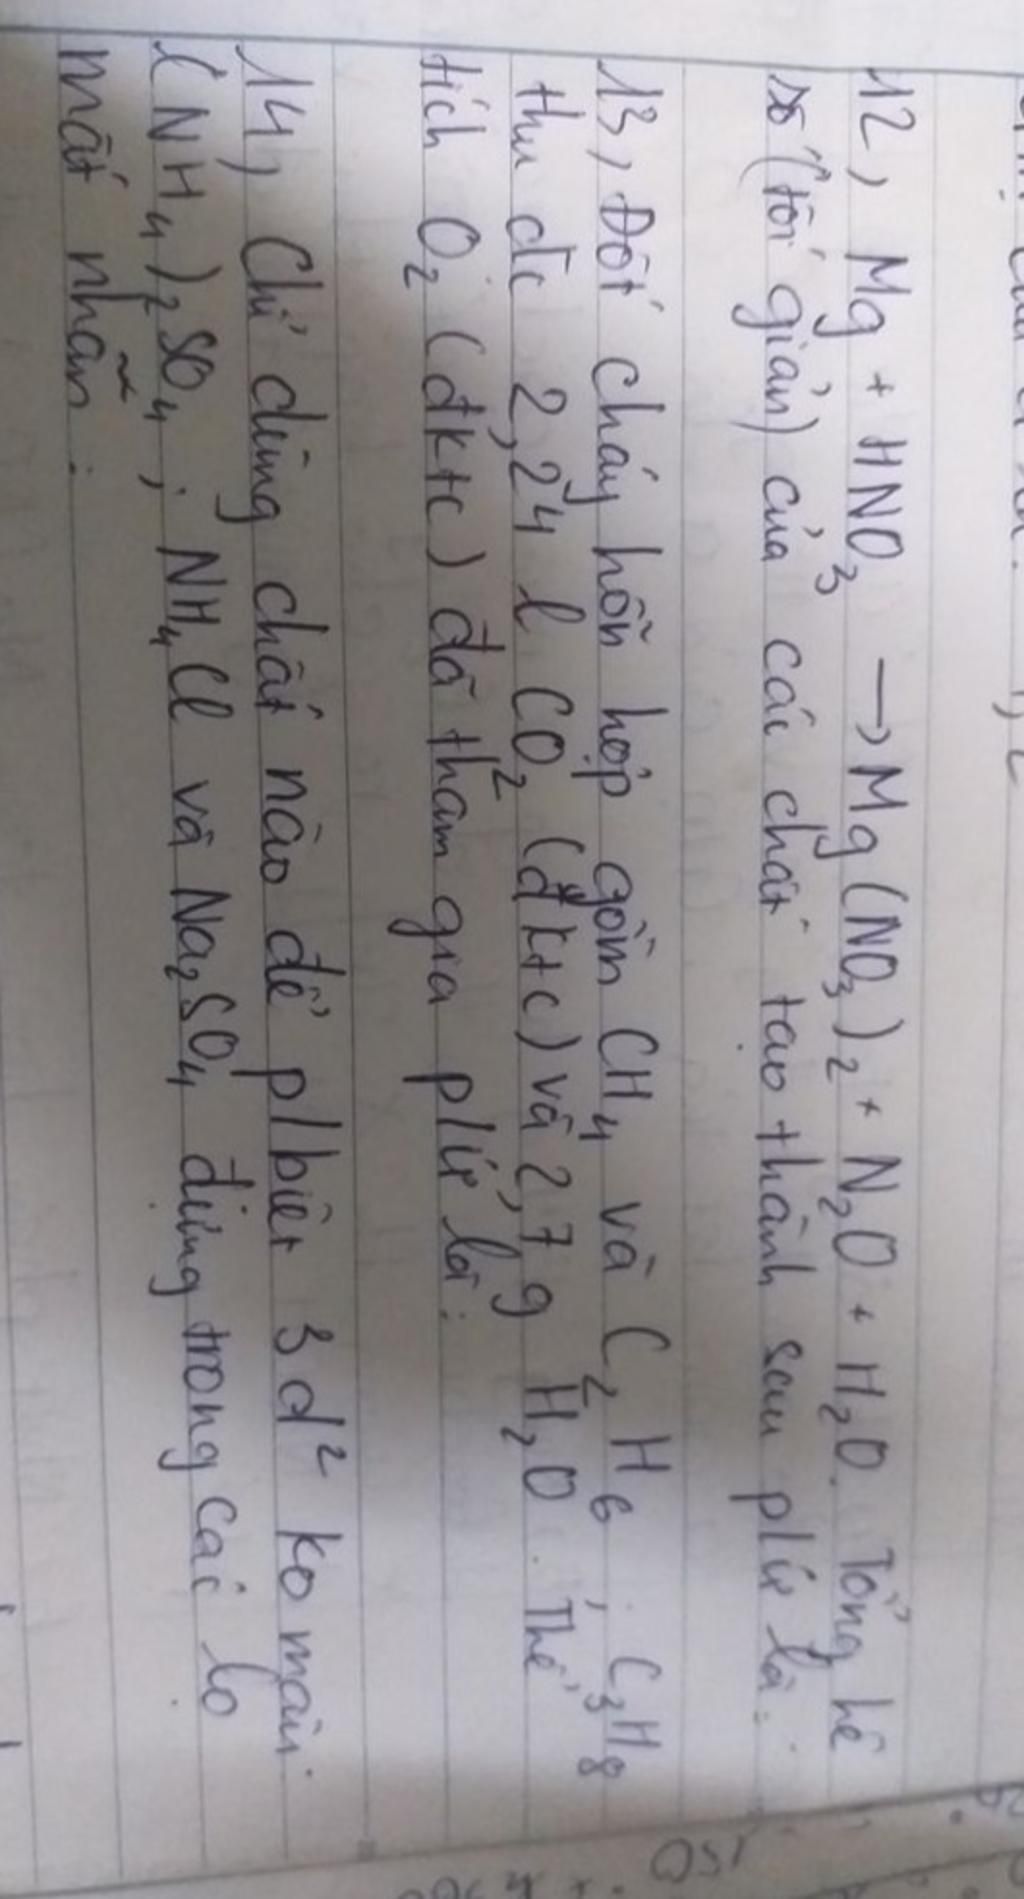 12, Mg + HNO₃ → Mg(NO₃)₂ + N₂O + H₂O. Tổng hệ
số (tối giản) của các chất tạo thành sau pứ là:
13, Đốt cháy hỗn hợp gồm CH₄ và C₂H₆, C₃H₈
thu đc 2,24 l CO₂ (đktc) và 2,7g H₂O. Thể
tích O₂ (đktc) đã tham gia pứ là:
14, Chỉ dùng chất nào để p/biệt 3 d² ko màu:
(NH₄)₂SO₄; NH₄Cl và Na₂SO₄ đựng trong các lo
mất nhãn:
150